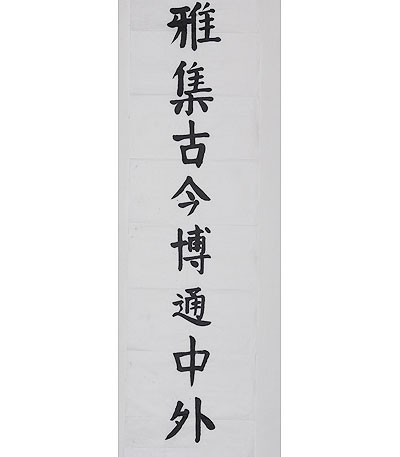 雅集古今博通中外